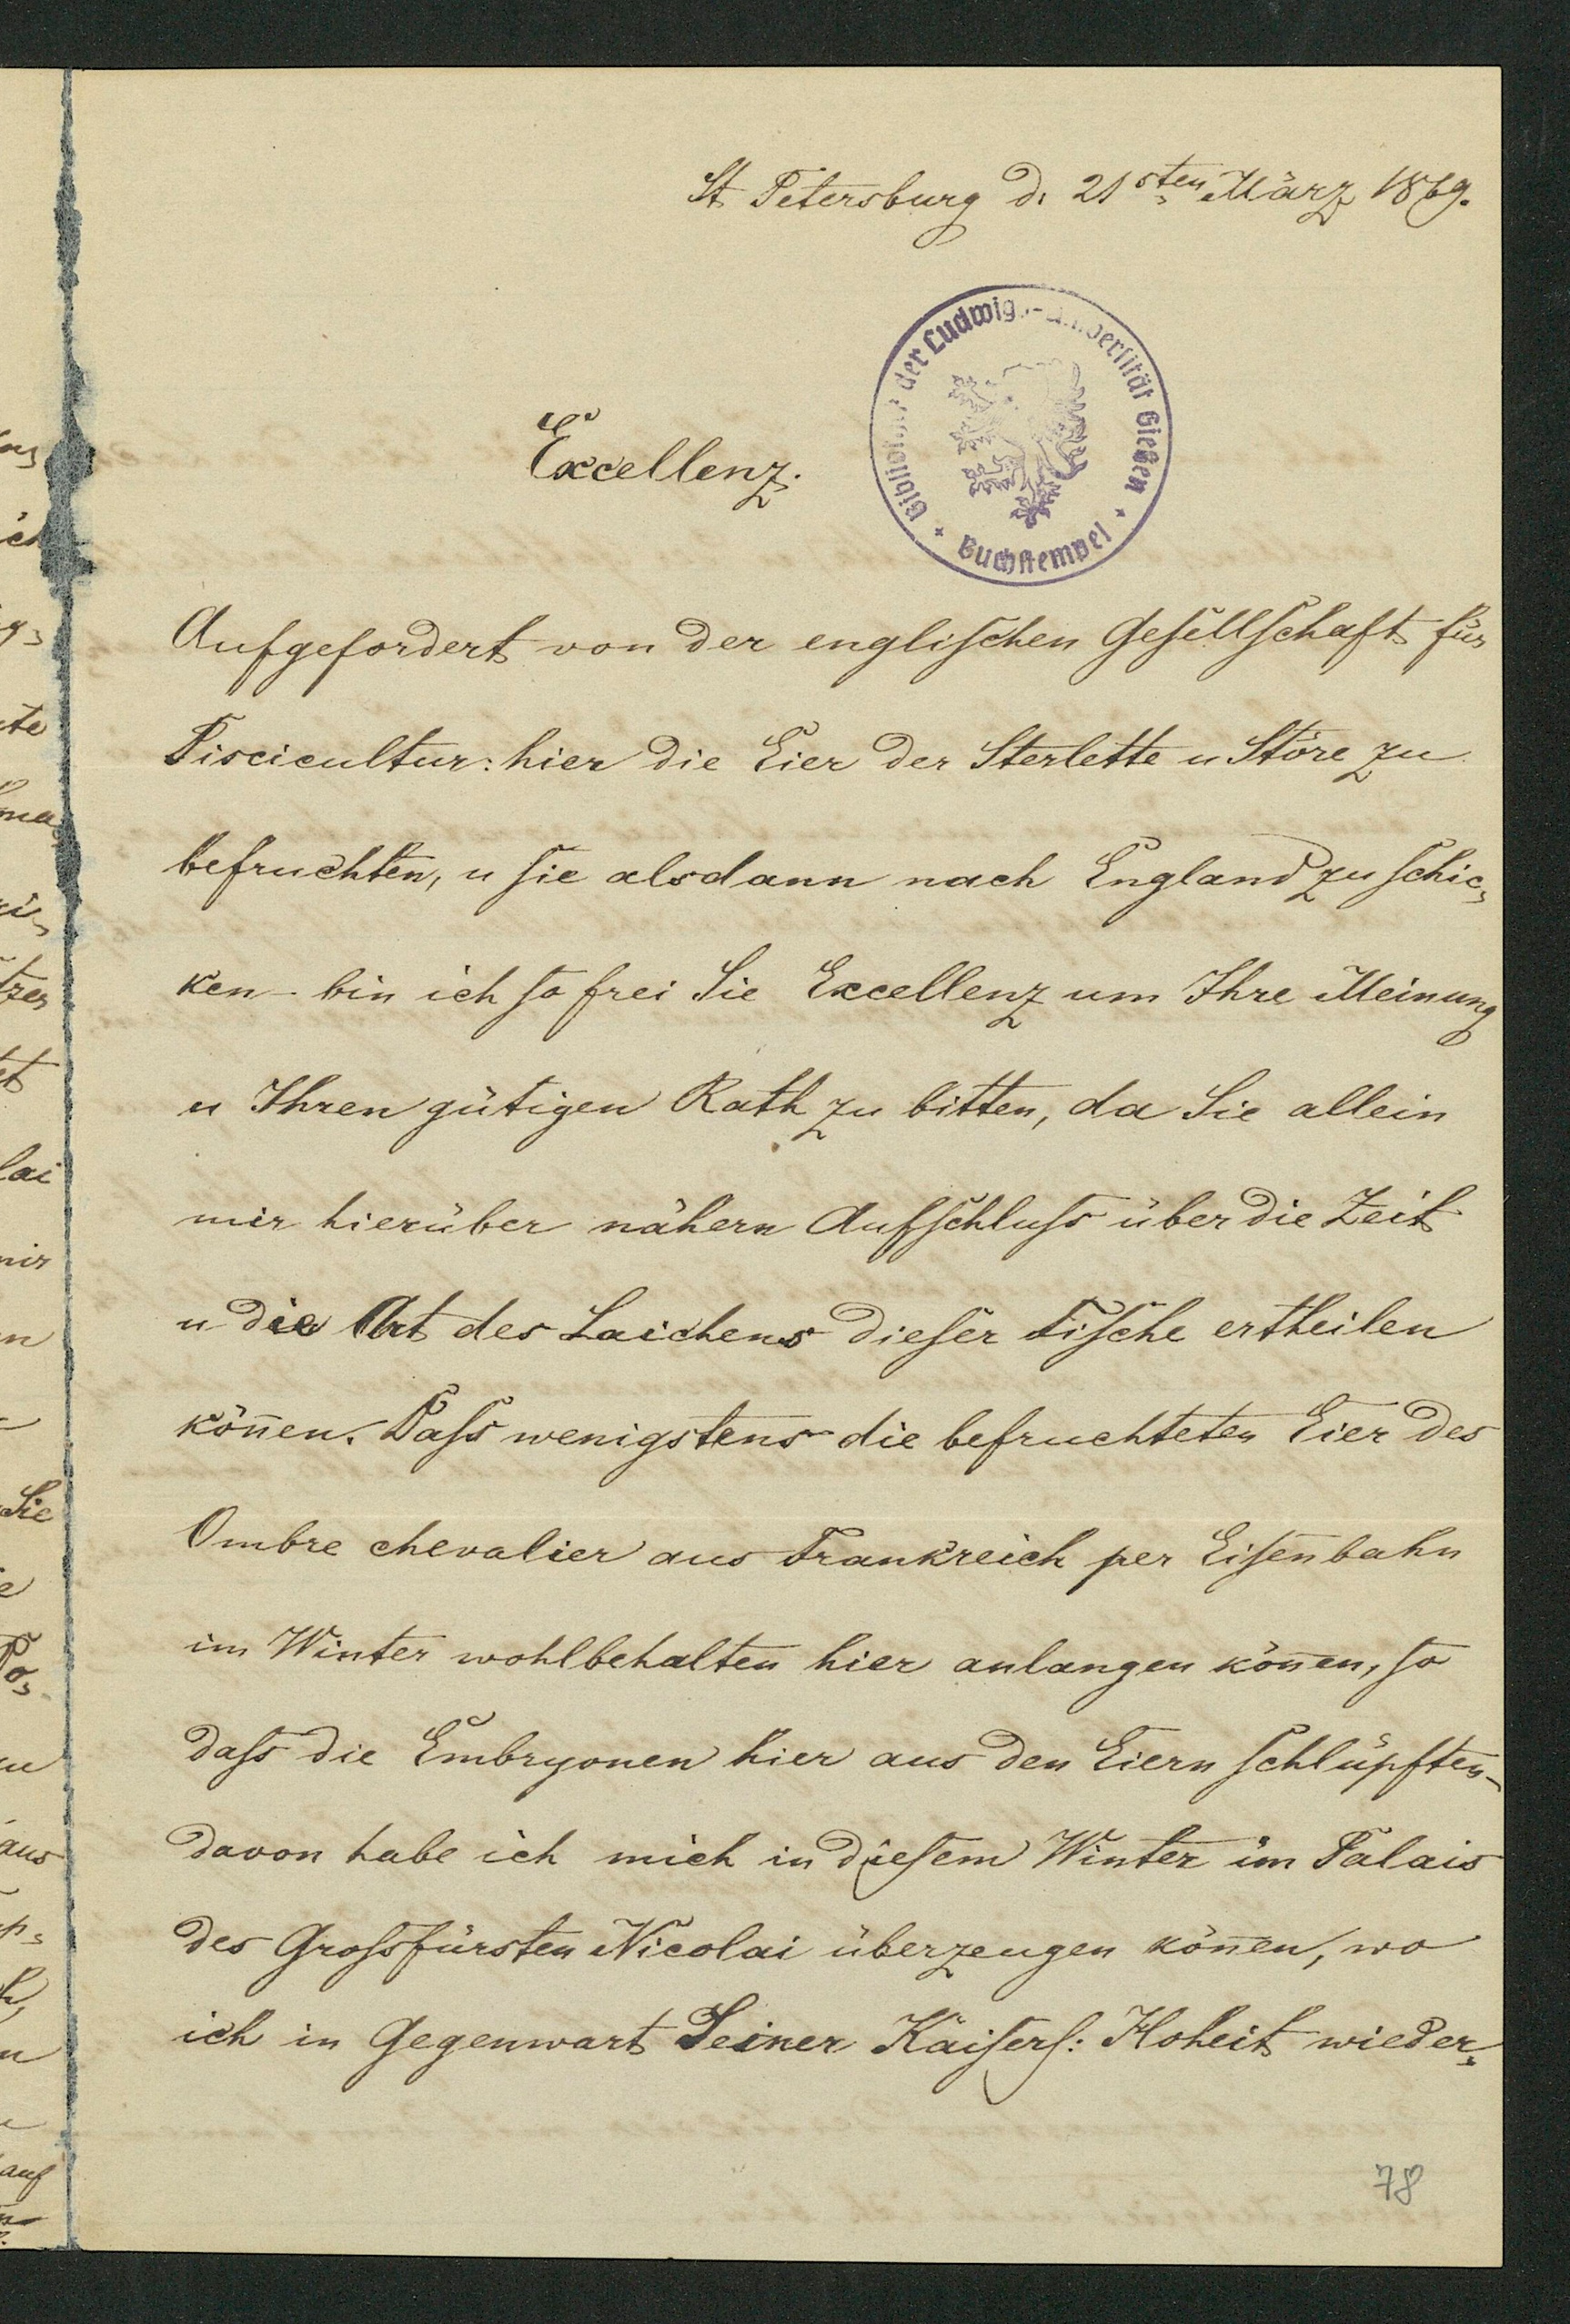 St Petersburg d. 21sten März 1869.
Bibliothek der Ludwigs-Universität Gießen
Buchstempel
Excellenz.
Aufgefordert von der englischen Gesellschaft für
Piscicultur: hier die Eier der Sterlette u Störe zu
befruchten, u sie alsdann nach England zu schic-
ken - bin ich so frei Sie Excellenz um Ihre Meinung
u Ihren gütigen Rath zu bitten, da Sie allein
mir hierüber nähern Aufschluss über die Zeit
u die Art des Laichens dieser Fische ertheilen
köñen. Dass wenigstens die befruchteten Eier des
Ombre chevalier aus Frankreich per Eisenbahn
im Winter wohlbehalten hier anlangen köñen, so
dass die Embryonen hier aus den Eiern schlüpften -
davon habe ich mich in diesem Winter im Palais
des Grossfürsten Nicolai überzeugen köñen, wo
ich in Gegenwart Seiner Kaiserl: Hoheit wieder-
78